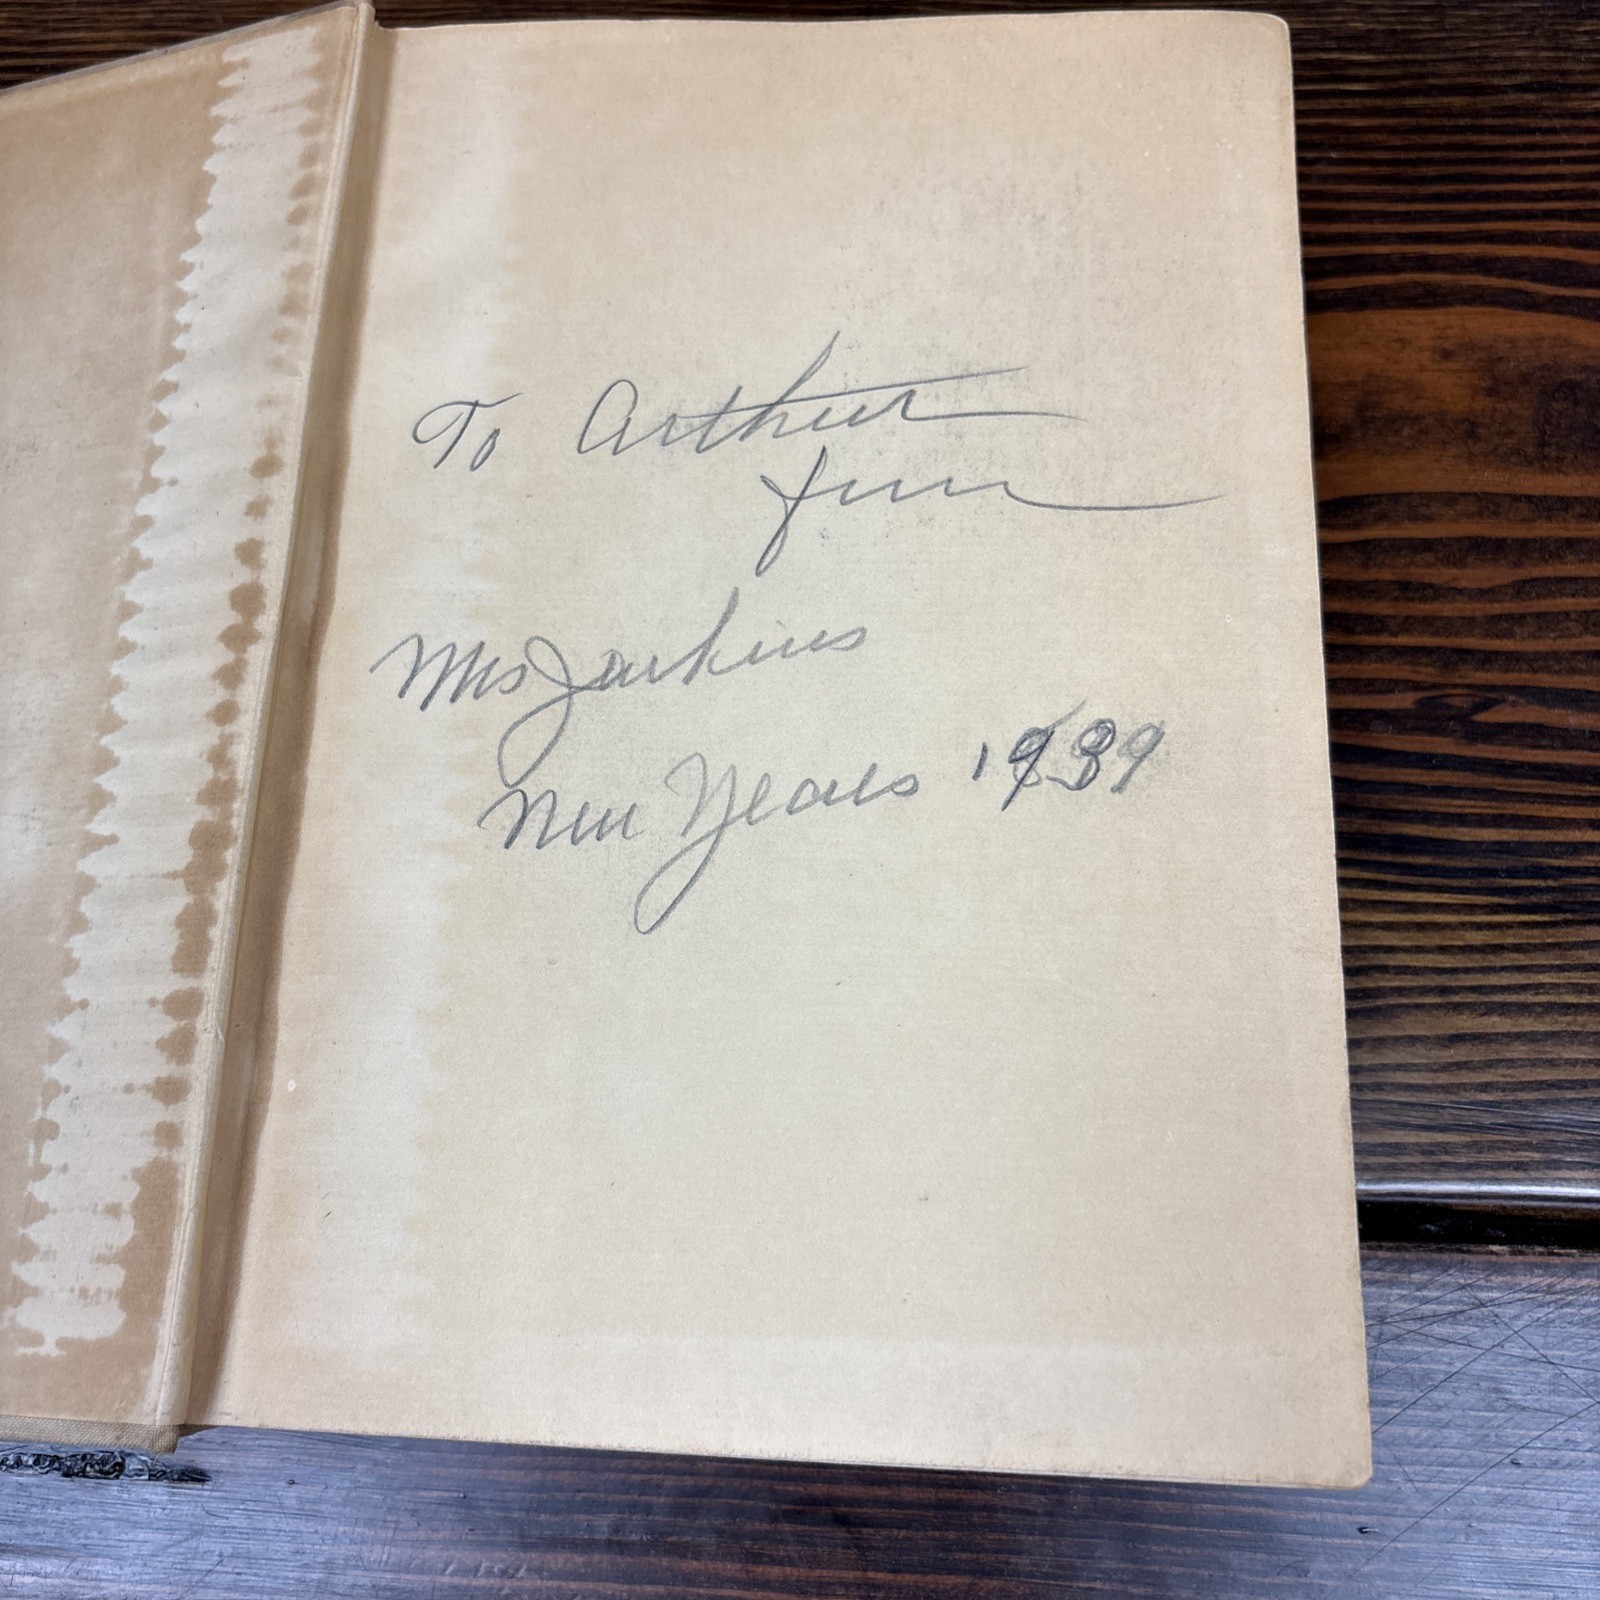 To Arthur
from
Mrs Jenkins
New Years 1939